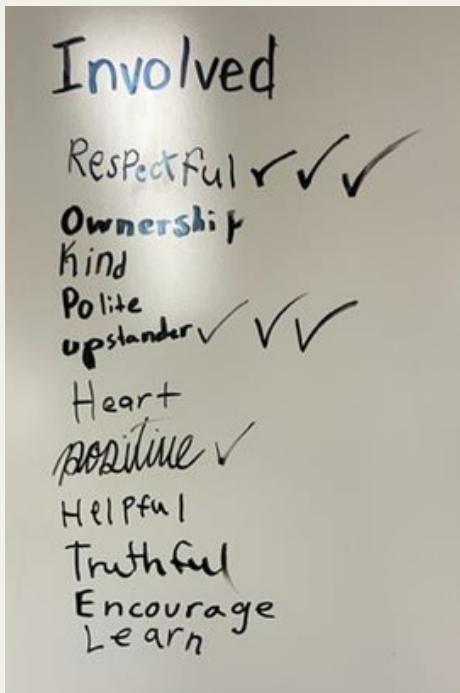 Involved
Respectful ✓ ✓ ✓
Ownership
Kind
Polite
upstander ✓ ✓ ✓
Heart
positive ✓
Helpful
Truthful
Encourage
Learn